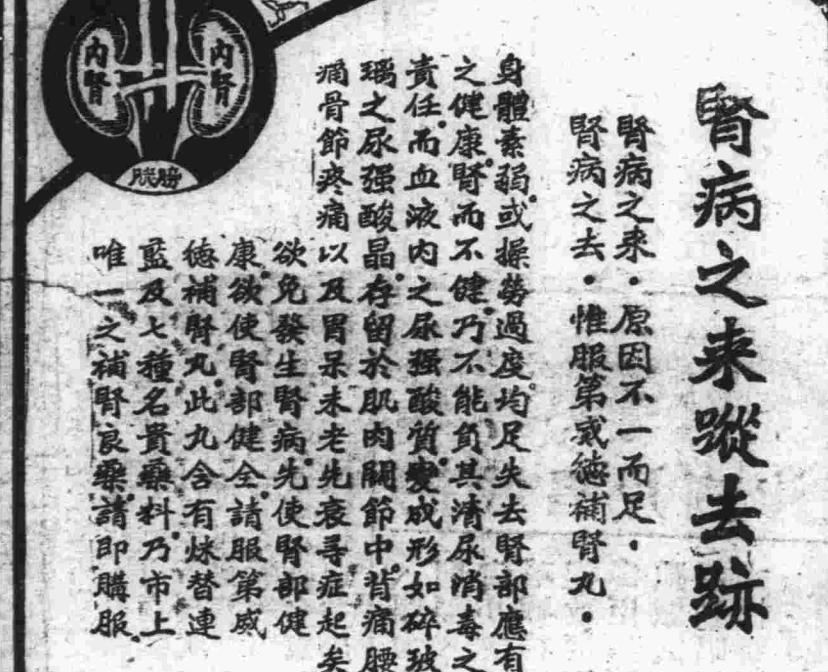 腎病之来蹤去跡
腎病之来．原因不一而足．
腎病之去．惟服第威德補腎丸．
身體素弱。或操勞過度。均足失去腎部應有
之健康。腎而不健。乃不能負其清尿消毒之
責任。而血液內之尿强酸質。變成形如碎玻
璃之尿强酸晶。存留於肌肉關節中。背痛腰
痛骨節疼痛以及胃呆未老先衰等症起矣
欲免發生腎病。先使腎部健
康。欲使腎部健全。請服第威
德補腎丸。此丸含有炑替連
藍及七種名貴藥料。乃市上
唯一之補腎良藥。請即購服。
內腎
內腎
膀胱